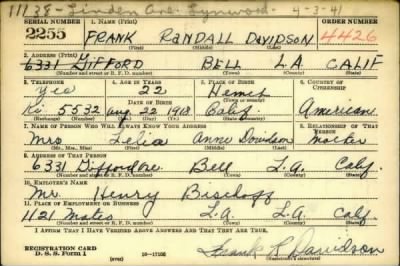 11138 - Linden Ave. Lynwood - 4-3-41
SERIAL NUMBER 1. NAME (Print) ORDER NUMBER
2255 FRANK RANDALL DAVIDSON 4426
(First) (Middle) (Last)
2. ADDRESS (Print)
6331 GIFFORD BELL L A CALIF
(Number and street or R. F. D. number) (Town) (County) (State)
3. TELEPHONE 4. AGE IN YEARS 5. PLACE OF BIRTH 6. COUNTRY OF CITIZENSHIP
Yes 22 Hemet
DATE OF BIRTH
Ki. 5532 Aug. 22 1918 Calif. American
(Exchange) (Number) (Mo.) (Day) (Yr.) (State or country)
7. NAME OF PERSON WHO WILL ALWAYS KNOW YOUR ADDRESS 8. RELATIONSHIP OF THAT PERSON
Mrs Lelia Anne Davidson Mother
(Mr., Mrs., Miss) (First) (Middle) (Last)
9. ADDRESS OF THAT PERSON
6331 Bell L.A. Calif.
(Number and street or R. F. D. number) (Town) (County) (State)
10. EMPLOYER'S NAME
Mr. Henry Bischoff
11. PLACE OF EMPLOYMENT OR BUSINESS
1121 Mateo L.A. L.A. Calif.
(Number and street or R. F. D. number) (Town) (County) (State)
I AFFIRM THAT I HAVE VERIFIED ABOVE ANSWERS AND THAT THEY ARE TRUE.
REGISTRATION CARD
D. S. S. Form 1 16-17105 Frank R Davidson
(Registrant's signature)